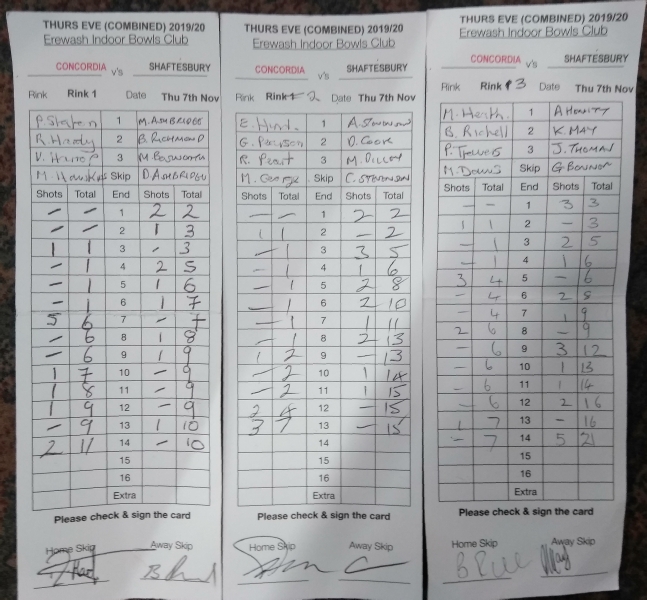 THURS EVE (COMBINED) 2019/20
Erewash Indoor Bowls Club
CONCORDIA v's SHAFTESBURY
Rink Rink 1 Date Thu 7th Nov
P. Staten 1 M. AMBRIDGE
R. Hardy 2 B. RICHMOND
V. 3 M. BOSWORTH
M. Hawkins Skip D AMBRIDGE
Shots Total End Shots Total
- - 1 2 2
- - 2 1 3
1 1 3 - 3
- 1 4 2 5
- 1 5 1 6
- 1 6 1 7
5 6 7 - 7
- 6 8 1 8
- 6 9 1 9
1 7 10 - 9
1 8 11 - 9
1 9 12 - 9
- 9 13 1 10
2 11 14 - 10
15
16
Extra
Please check & sign the card
Home Skip Away Skip
THURS EVE (COMBINED) 2019/20
Erewash Indoor Bowls Club
CONCORDIA v's SHAFTESBURY
Rink Rink 2 Date Thu 7th Nov
E. 1 A.
G. Pearson 2 D. Cook
R. Peart 3 M.
M. George Skip C. STEVENSON
Shots Total End Shots Total
- - 1 2 2
1 1 2 - 2
- 1 3 3 5
- 1 4 1 6
- 1 5 2 8
- 1 6 2 10
- 1 7 1 11
- 1 8 2 13
1 2 9 - 13
- 2 10 1 14
- 2 11 1 15
2 4 12 - 15
3 7 13 - 15
14
15
16
Extra
Please check & sign the card
Home Skip Away Skip
THURS EVE (COMBINED) 2019/20
Erewash Indoor Bowls Club
CONCORDIA v's SHAFTESBURY
Rink Rink 3 Date Thu 7th Nov
M. Heath 1 A
B. Richell 2 K. MAY
P. Towers 3 J. THOMAN
M. Downs Skip G
Shots Total End Shots Total
- - 1 3 3
1 1 2 - 3
- 1 3 2 5
- 1 4 1 6
3 4 5 - 6
- 4 6 2 8
- 4 7 1 9
2 6 8 - 9
- 6 9 3 12
- 6 10 1 13
- 6 11 1 14
- 6 12 2 16
1 7 13 - 16
- 7 14 5 21
15
16
Extra
Please check & sign the card
Home Skip Away Skip